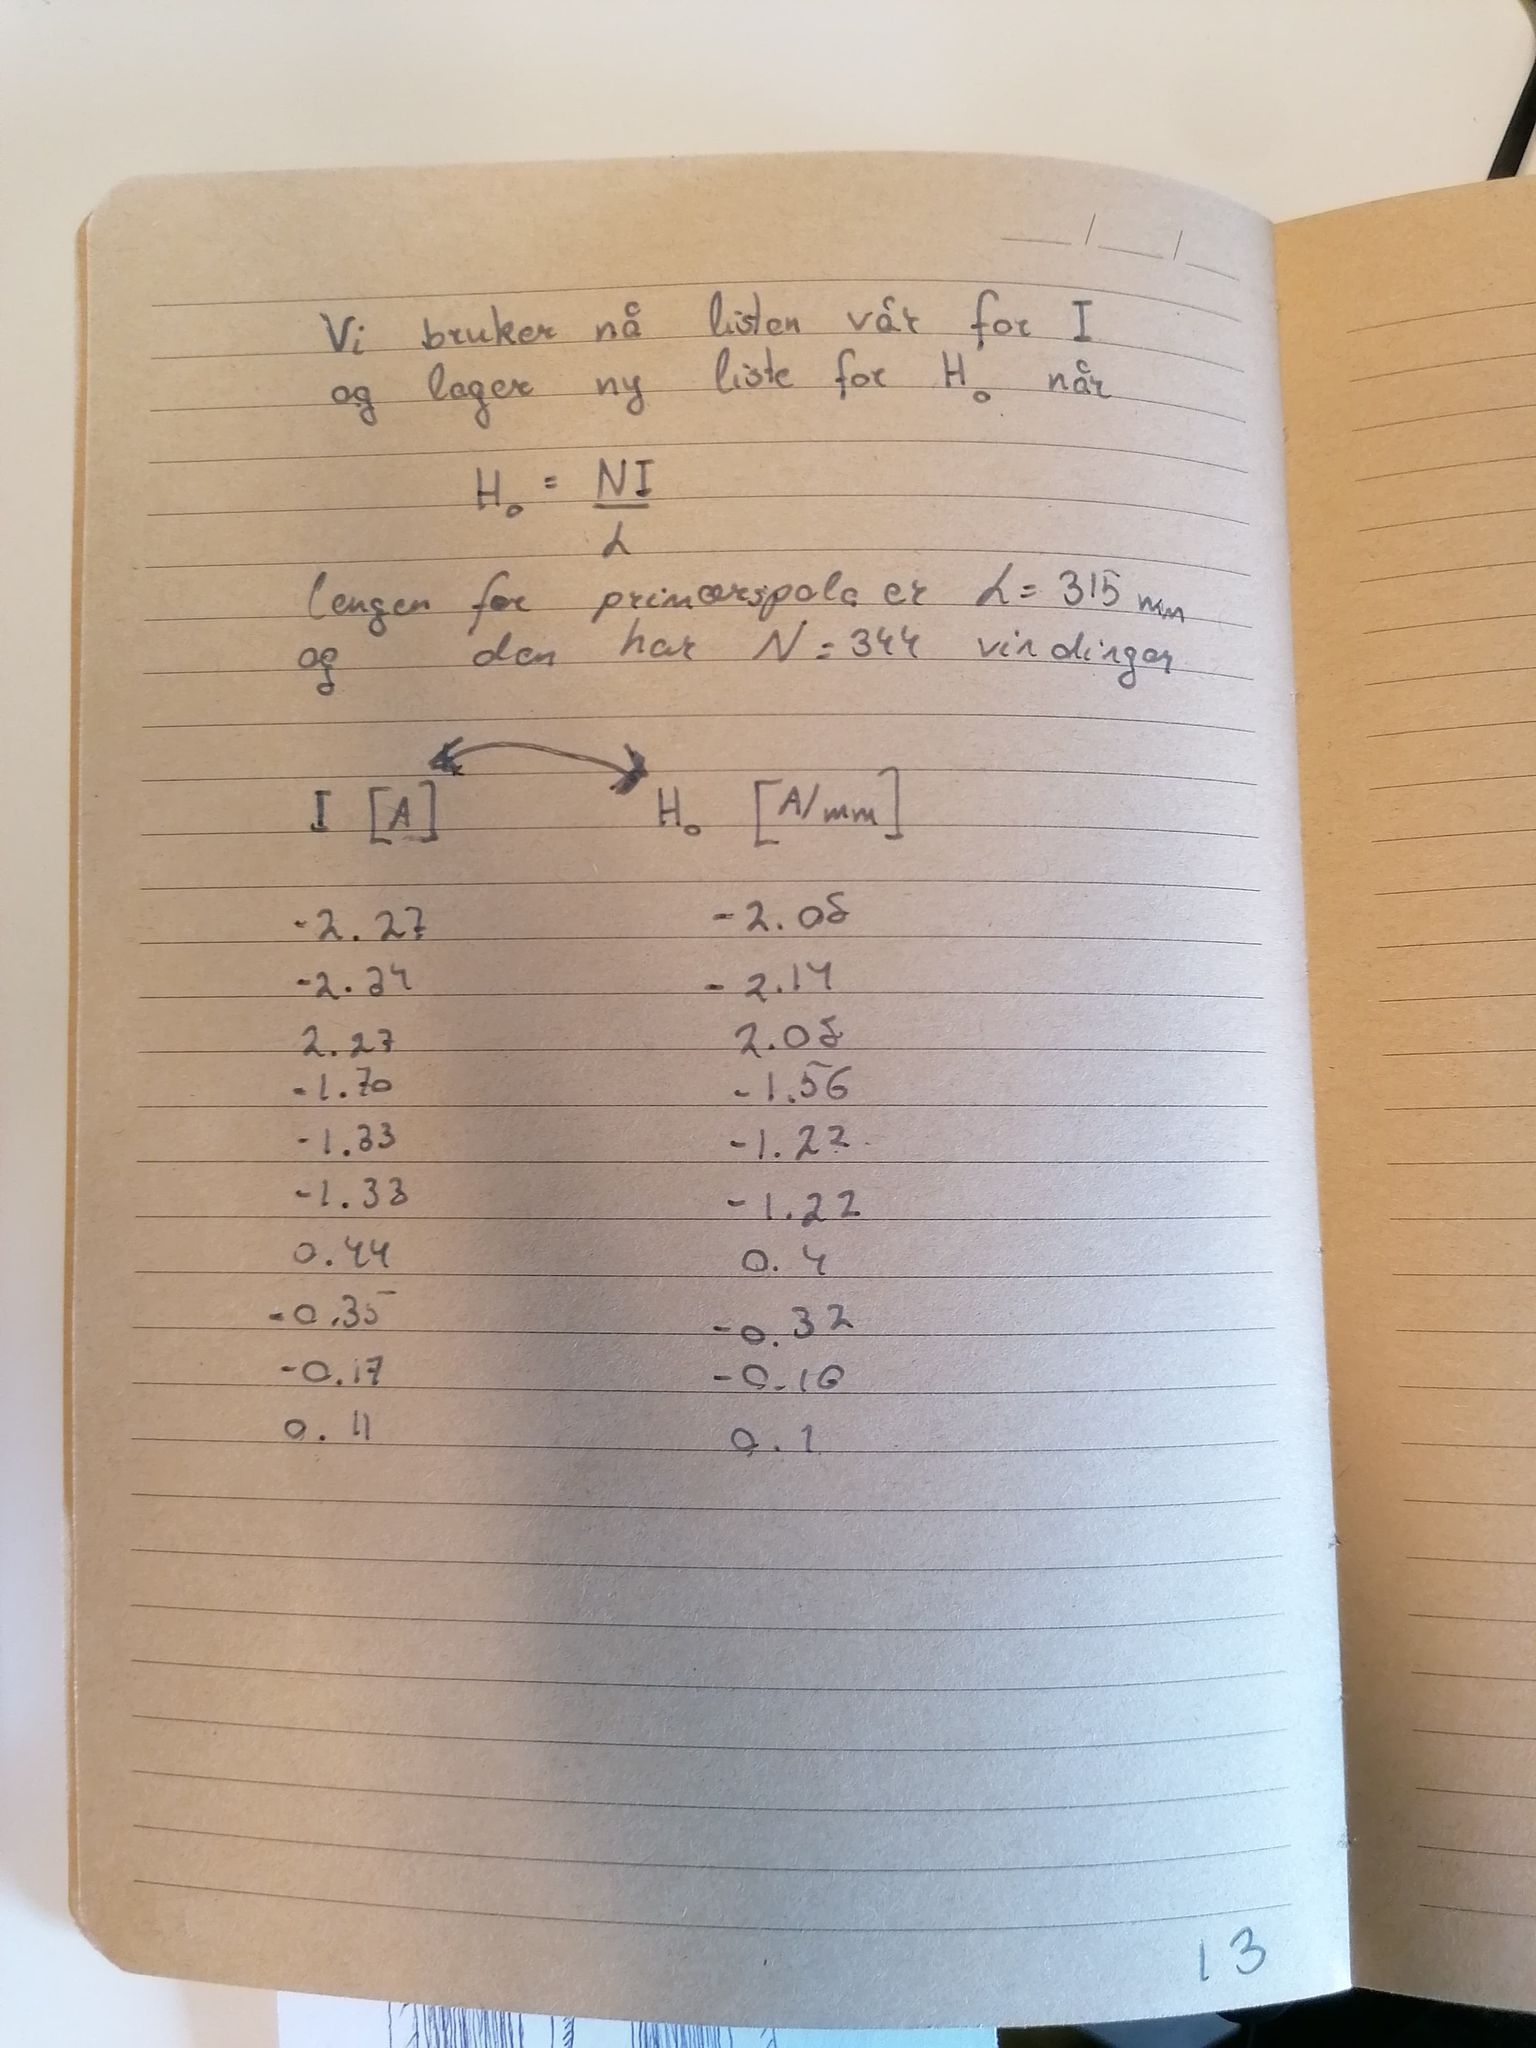 __/__/__
Vi bruker nå listen vår for I
og lager ny liste for H₀ når
H₀ = NI
L
lengen for primærspola er L = 315 mm
og den har N = 344 vindinger
I [A] H₀ [A/mm]
-2.27 -2.08
-2.34 -2.14
2.27 2.08
-1.70 -1.56
-1.33 -1.22
-1.33 -1.22
0.44 0.4
-0.35 -0.32
-0.17 -0.16
0.11 0.1
13